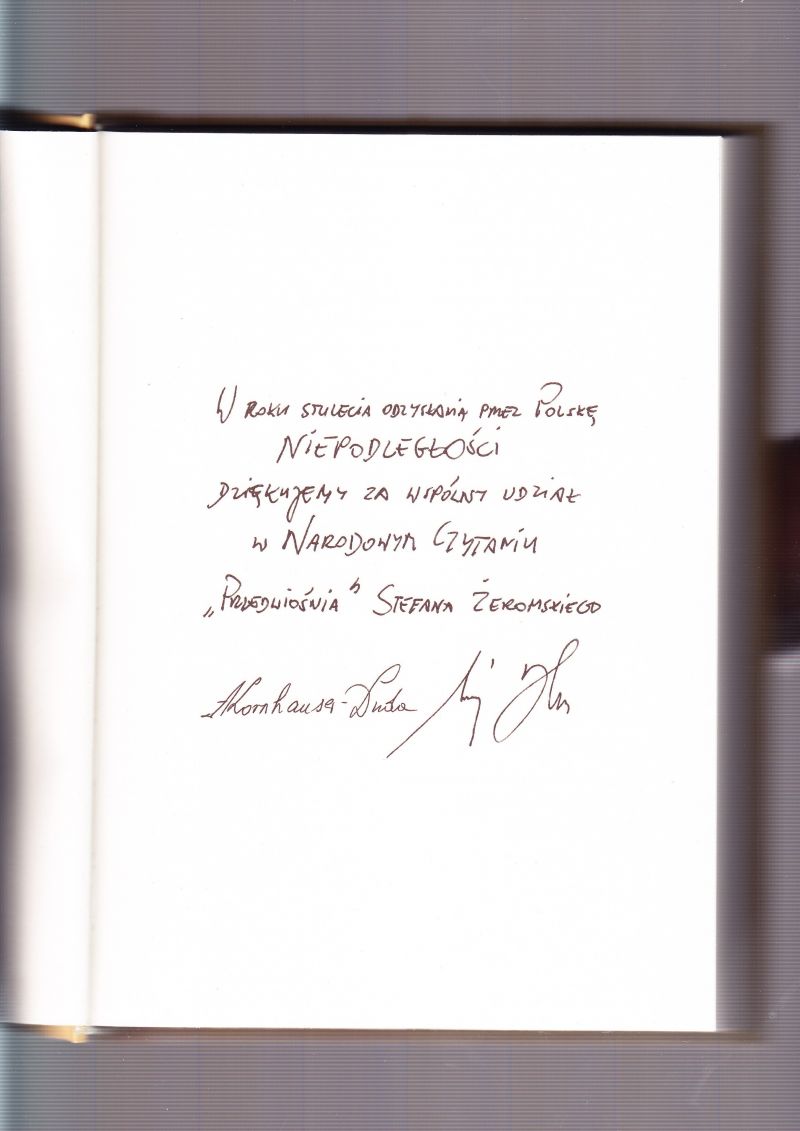 W ROKU STULECIA ODZYSKANIA PRZEZ POLSKĘ
NIEPODLEGŁOŚCI
DZIĘKUJEMY ZA WSPÓLNY UDZIAŁ
W NARODOWYM CZYTANIU
„PRZEDWIOŚNIA" STEFANA ŻEROMSKIEGO
AKornhauser-Duda